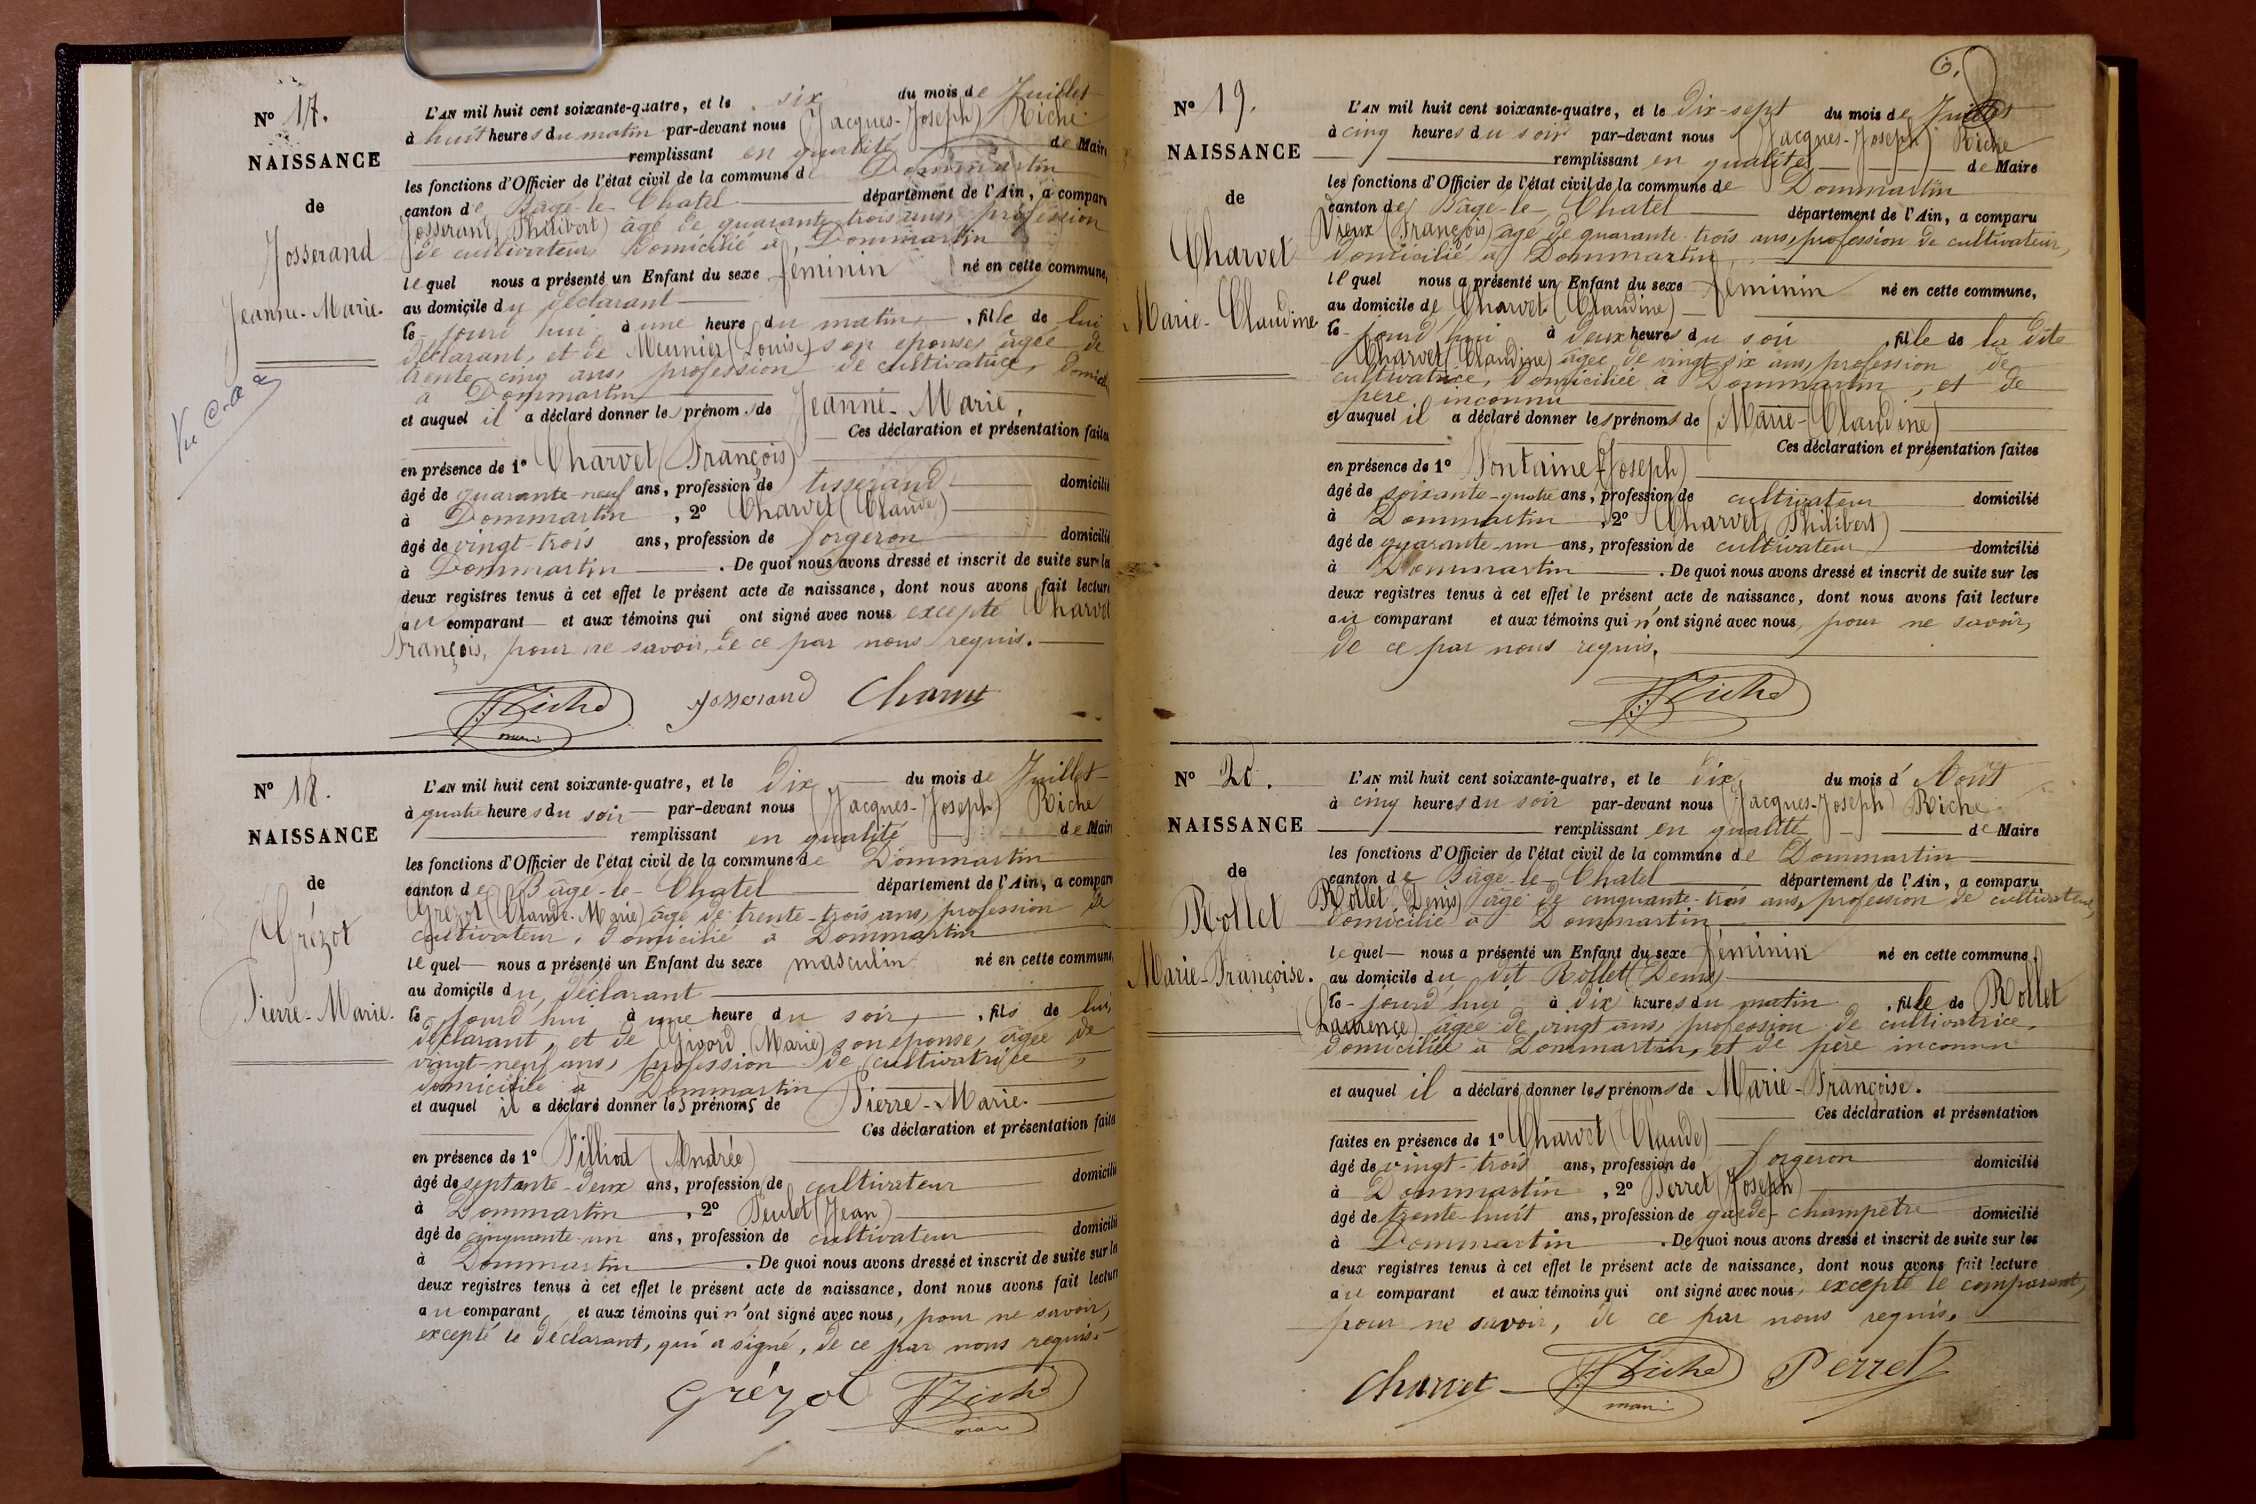 N° 17.
NAISSANCE
de
Josserand
Jeanne-Marie.
L'AN mil huit cent soixante-quatre, et le six du mois de Juillet
à huit heures du matin par-devant nous (Jacques-Joseph) Riche
remplissant en qualité de Maire
les fonctions d'Officier de l'état civil de la commune de Dommartin
canton de Bâgé-le-Chatel département de l'Ain, a comparu
Josserand (Philibert) âgé de quarante-trois ans, profession
de cultivateur, domicilié à Dommartin
lequel nous a présenté un Enfant du sexe féminin né en cette commune,
au domicile du déclarant
le jourd'hui à une heure du matin, fille de lui
déclarant, et de Meunier (Louise) son épouse, âgée de
trente-cinq ans, profession de cultivatrice, domici
à Dommartin
et auquel il a déclaré donner les prénoms de Jeanne-Marie,
Ces déclaration et présentation faites
en présence de 1° Charvet (François)
âgé de quarante-neuf ans, profession de tisserand domicilié
à Dommartin, 2° Charvet (Claude)
âgé de vingt-trois ans, profession de forgeron domicilié
à Dommartin. De quoi nous avons dressé et inscrit de suite sur les
deux registres tenus à cet effet le présent acte de naissance, dont nous avons fait lecture
au comparant et aux témoins qui ont signé avec nous excepté Charvet
François, pour ne savoir, de ce par nous requis.
JJ Riche Josserand Charvet
maire
N° 18.
NAISSANCE
de
Grézot
Pierre-Marie.
L'AN mil huit cent soixante-quatre, et le dix du mois de Juillet
à quatre heures du soir par-devant nous (Jacques-Joseph) Riche
remplissant en qualité de Maire
les fonctions d'Officier de l'état civil de la commune de Dommartin
canton de Bâgé-le-Chatel département de l'Ain, a comparu
Grézot (Claude-Marie) âgé de trente-trois ans, profession de
cultivateur, domicilié à Dommartin
lequel nous a présenté un Enfant du sexe masculin né en cette commune,
au domicile du déclarant
le jourd'hui à une heure du soir, fils de lui,
déclarant, et de Givord (Marie) son épouse, âgée de
vingt-neuf ans, profession de cultivatrice,
domiciliée à Dommartin
et auquel il a déclaré donner les prénoms de Pierre-Marie.
Ces déclaration et présentation faites
en présence de 1° Pilliod (Andrée)
âgé de septante-deux ans, profession de cultivateur domicilié
à Dommartin, 2° Peulet (Jean)
âgé de cinquante-un ans, profession de cultivateur domicilié
à Dommartin. De quoi nous avons dressé et inscrit de suite sur les
deux registres tenus à cet effet le présent acte de naissance, dont nous avons fait lecture
au comparant et aux témoins qui n'ont signé avec nous, pour ne savoir,
excepté le déclarant, qui a signé, de ce par nous requis.
Grézot JJ Riche
N° 19.
NAISSANCE
de
Charvet
Marie-Claudine
L'AN mil huit cent soixante-quatre, et le dix-sept du mois de Juillet
à cinq heures du soir par-devant nous (Jacques-Joseph) Riche
remplissant en qualité de Maire
les fonctions d'Officier de l'état civil de la commune de Dommartin
canton de Bâgé-le-Chatel département de l'Ain, a comparu
Vieux (François) âgé de quarante-trois ans, profession de cultivateur,
domicilié à Dommartin,
lequel nous a présenté un Enfant du sexe féminin né en cette commune,
au domicile de Charvet (Claudine)
le jourd'hui à deux heures du soir fille de la dite
Charvet (Claudine) âgée de vingt-six ans, profession de
cultivatrice, domiciliée à Dommartin, et de
père inconnu
et auquel il a déclaré donner les prénoms de (Marie-Claudine)
Ces déclaration et présentation faites
en présence de 1° Fontaine (Joseph)
âgé de soixante-quatre ans, profession de cultivateur domicilié
à Dommartin, 2° Charvet (Philibert)
âgé de quarante-un ans, profession de cultivateur domicilié
à Dommartin. De quoi nous avons dressé et inscrit de suite sur les
deux registres tenus à cet effet le présent acte de naissance, dont nous avons fait lecture
au comparant et aux témoins qui n'ont signé avec nous, pour ne savoir,
de ce par nous requis.
JJ Riche
N° 20.
NAISSANCE
de
Rollet
Marie-Françoise.
L'AN mil huit cent soixante-quatre, et le dix du mois d'Août
à cinq heures du soir par-devant nous (Jacques-Joseph) Riche
remplissant en qualité de Maire
les fonctions d'Officier de l'état civil de la commune de Dommartin
canton de Bâgé-le-Chatel département de l'Ain, a comparu
Rollet (Denis) âgé de cinquante-trois ans, profession de cultivateur,
domicilié à Dommartin
lequel nous a présenté un Enfant du sexe féminin né en cette commune,
au domicile du dit Rollet (Denis)
le jourd'hui à dix heures du matin, fille de Rollet
(Laurence) âgée de vingt ans, profession de cultivatrice,
domiciliée à Dommartin, et de père inconnu
et auquel il a déclaré donner les prénoms de Marie-Françoise.
Ces déclaration et présentation
faites en présence de 1° Charvet (Claude)
âgé de vingt-trois ans, profession de forgeron domicilié
à Dommartin, 2° Perret (Joseph)
âgé de trente-huit ans, profession de garde-champêtre domicilié
à Dommartin. De quoi nous avons dressé et inscrit de suite sur les
deux registres tenus à cet effet le présent acte de naissance, dont nous avons fait lecture
au comparant et aux témoins qui ont signé avec nous, excepté le comparant,
pour ne savoir, de ce par nous requis.
Charvet JJ Riche Perret
maire